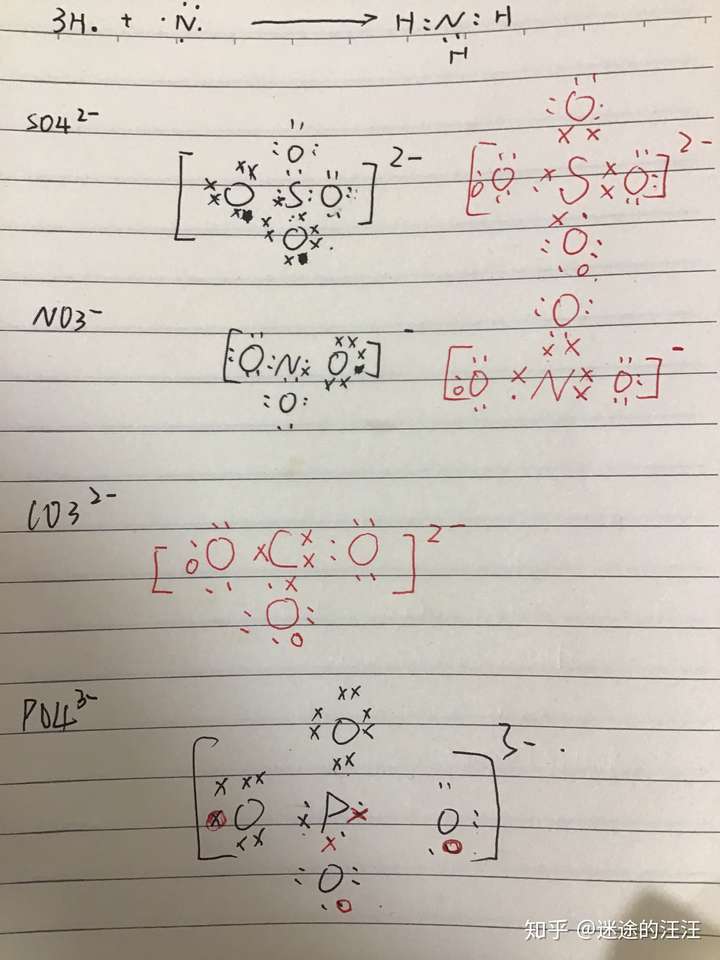 3H. + ·N. → H:N:H
H
SO4 2-
O
[O S O] 2-
O
O
[O S O] 2-
O
NO3 -
[O N O] -
O
O
[O N O] -
CO3 2-
[O C O] 2-
O
PO4 3-
O
[O P O] 3-
O
知乎 @迷途的汪汪